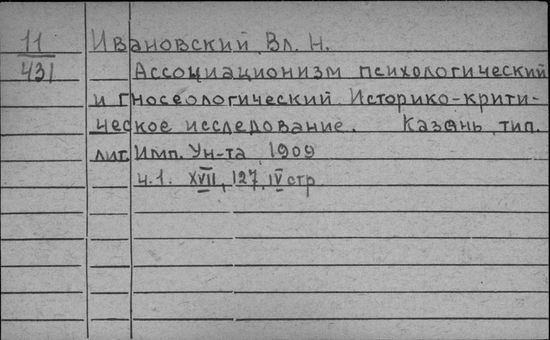 11
431
Ивановский Вл. Н.
Ассоциационизм психологический
и гносеологический Историко-крити-
ческое исследование. Казань, тип.
лит. Имп. Ун-та 1909
ч.1. XVII, 127, IV стр